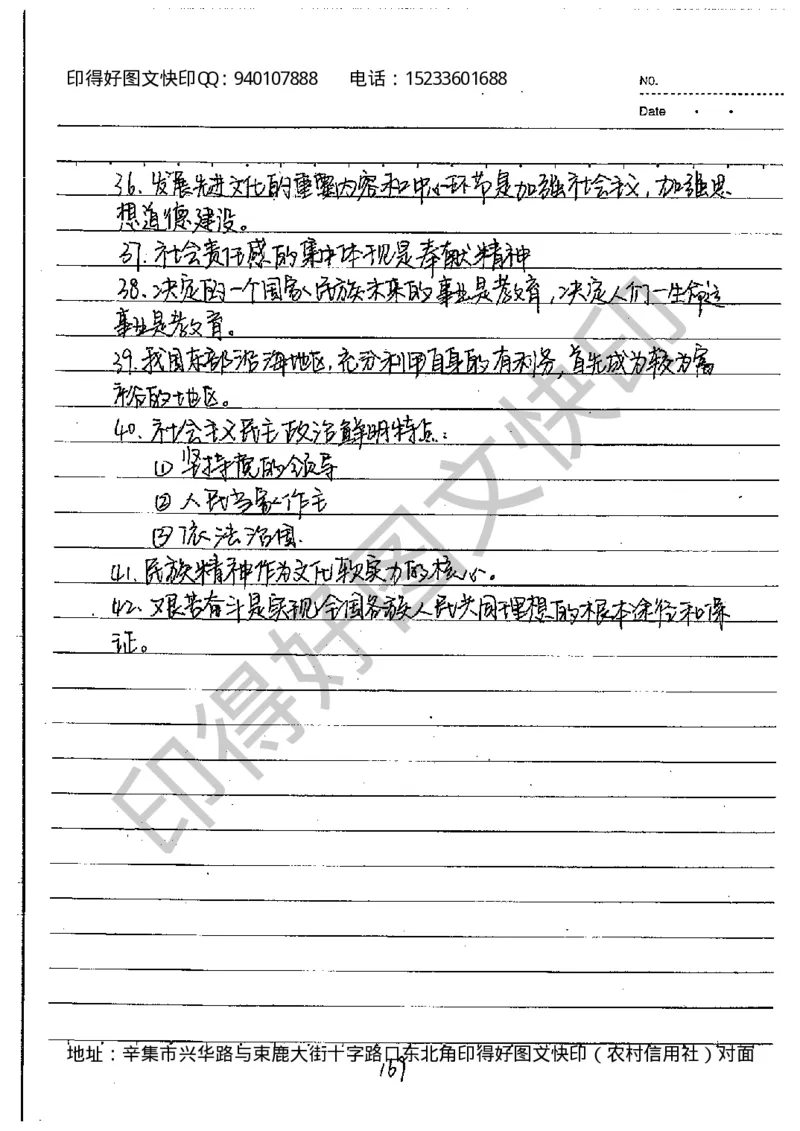 印得好图文快印QQ：940107888 电话：15233601688
NO.
Date
36、发展先进文化的重要内容和中心环节是加强社会主义，加强思
想道德建设。
37. 社会责任感的集中体现是奉献精神
38、决定的一个国家、民族未来的事业是教育，决定人们一生命运
事业是教育。
39、我国东部沿海地区，充分利用自身的有利务，首先成为较为富
裕的地区。
40、社会主义民主政治鲜明特点：
① 坚持党的领导
② 人民当家作主
③ 依法治国.
41. 民族精神作为文化软实力的核心。
42、艰苦奋斗是实现全国各族人民共同理想的根本途径和保
证。
地址：辛集市兴华路与束鹿大街十字路口东北角印得好图文快印（农村信用社）对面
169
印得好图文快印